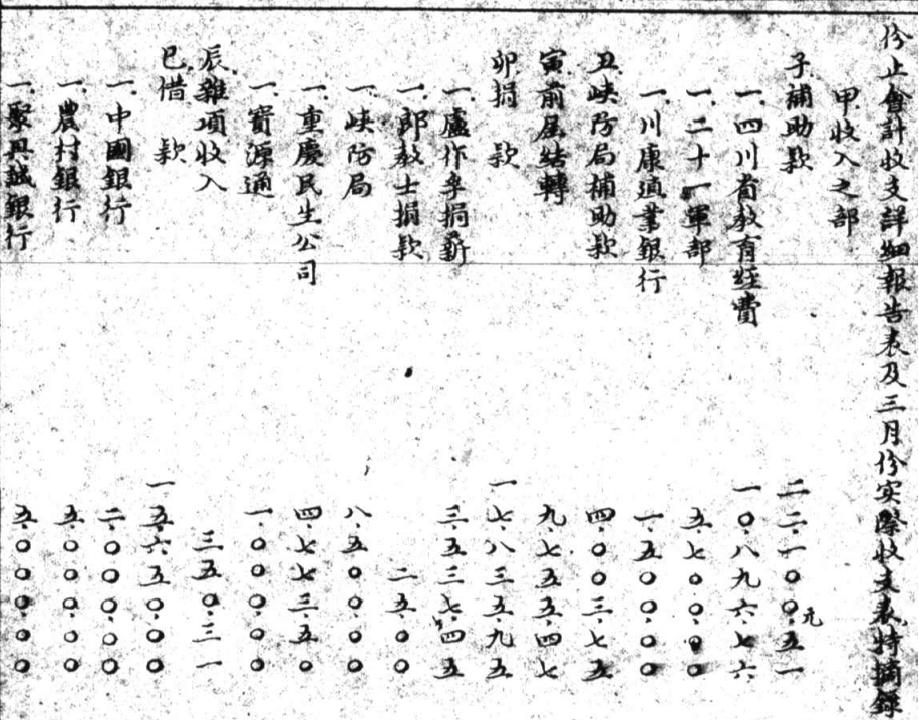 份止會計收支詳細報告表及三月份实際收支表、特摘錄
甲、收入之部
子、補助款 二二·一〇〇·五一元
一、四川省教育經費 一〇·八九六·七六
一、二十一軍部 五·七〇〇·〇〇
一、川康殖業銀行 一·五〇〇·〇〇
丑、峽防局補助款 四·〇〇三·七五
寅、前屆結轉 九·七五五·四七
卯、捐款 一七·八三五·九五
一、盧作孚捐薪 三·五三七·四五
一、郎教士捐款 二五·〇〇
一、峽防局 八·五〇〇·〇〇
一、重慶民生公司 四·七七三·五〇
一、寶源通 一·〇〇〇·〇〇
辰、雜項收入 三五〇·三一
巳、借款 一五·六五〇·〇〇
一、中國銀行 二·〇〇〇·〇〇
一、農村銀行 五·〇〇〇·〇〇
一、聚興誠銀行 五·〇〇〇·〇〇